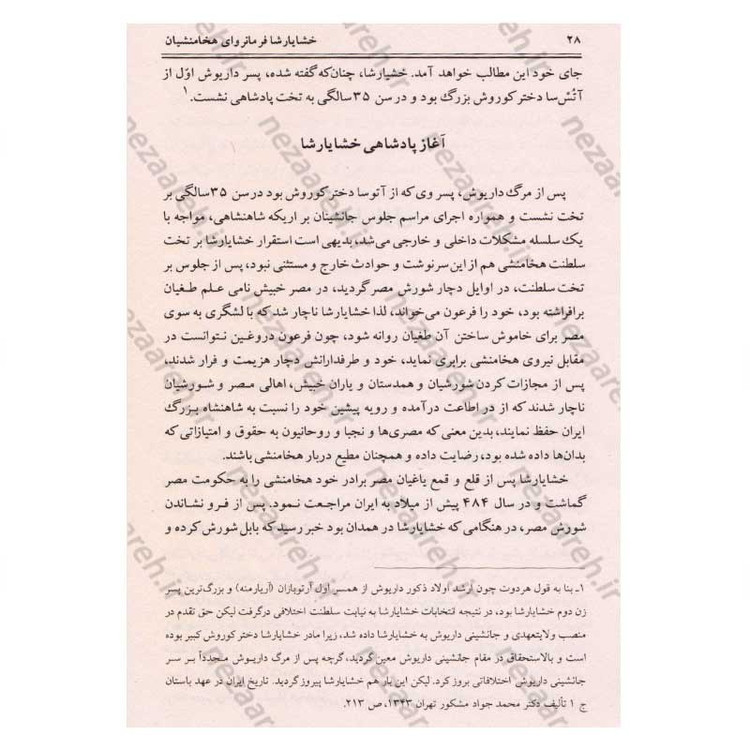 ۲۸ خشایارشا فرمانروای هخامنشیان
جای خود این مطالب خواهد آمد. خشیارشا، چنان‌که گفته شده، پسر داریوش اوّل از
آتُسّ‌سا دختر کوروش بزرگ بود و در سن ۳۵ سالگی به تخت پادشاهی نشست.۱
آغاز پادشاهی خشایارشا
پس از مرگ داریوش، پسر وی که از آتوسا دختر کوروش بود در سن ۳۵ سالگی بر
تخت نشست و همواره اجرای مراسم جلوس جانشینان بر اریکه شاهنشاهی، مواجه با
یک سلسله مشکلات داخلی و خارجی می‌شد، بدیهی است استقرار خشایارشا بر تخت
سلطنت هخامنشی هم از این سرنوشت و حوادث خارج و مستثنی نبود، پس از جلوس بر
تخت سلطنت، در اوایل دچار شورش مصر گردید، در مصر خبیش نامی علم طغیان
برافراشته بود، خود را فرعون می‌خواند، لذا خشایارشا ناچار شد که با لشگری به سوی
مصر برای خاموش ساختن آن طغیان روانه شود، چون فرعون دروغین نتوانست در
مقابل نیروی هخامنشی برابری نماید، خود و طرفدارانش دچار هزیمت و فرار شدند،
پس از مجازات کردن شورشیان و همدستان و یاران خبیش، اهالی مصر و شورشیان
ناچار شدند که از در اطاعت درآمده و رویه پیشین خود را نسبت به شاهنشاه بزرگ
ایران حفظ نمایند، بدین معنی که مصری‌ها و نجبا و روحانیون به حقوق و امتیازاتی که
بدان‌ها داده شده بود، رضایت داده و همچنان مطیع دربار هخامنشی باشند.
خشایارشا پس از قلع و قمع یاغیان مصر برادر خود هخامنشی را به حکومت مصر
گماشت و در سال ۴۸۴ پیش از میلاد به ایران مراجعت نمود. پس از فرو نشاندن
شورش مصر، در هنگامی که خشایارشا در همدان بود خبر رسید که بابل شورش کرده و
۱ـ بنا به قول هردوت چون ارشد اولاد ذکور داریوش از همسر اول آرتوبازان (آریارمنه) و بزرگ‌ترین پسر
زن دوم خشایارشا بود، در نتیجه انتخابات خشایارشا به نیابت سلطنت اختلافی درگرفت لیکن حق تقدم در
منصب ولایتعهدی و جانشینی داریوش به خشایارشا داده شد، زیرا مادر خشایارشا دختر کوروش کبیر بوده
است و بالاستحقاق در مقام جانشینی داریوش معین گردید، گرچه پس از مرگ داریوش مجدداً بر سر
جانشینی داریوش اختلافاتی بروز کرد. لیکن این بار هم خشایارشا پیروز گردید. تاریخ ایران در عهد باستان
ج ۱ تألیف دکتر محمد جواد مشکور تهران ۱۳۴۳، ص ۲۱۳.
nezaareh.ir